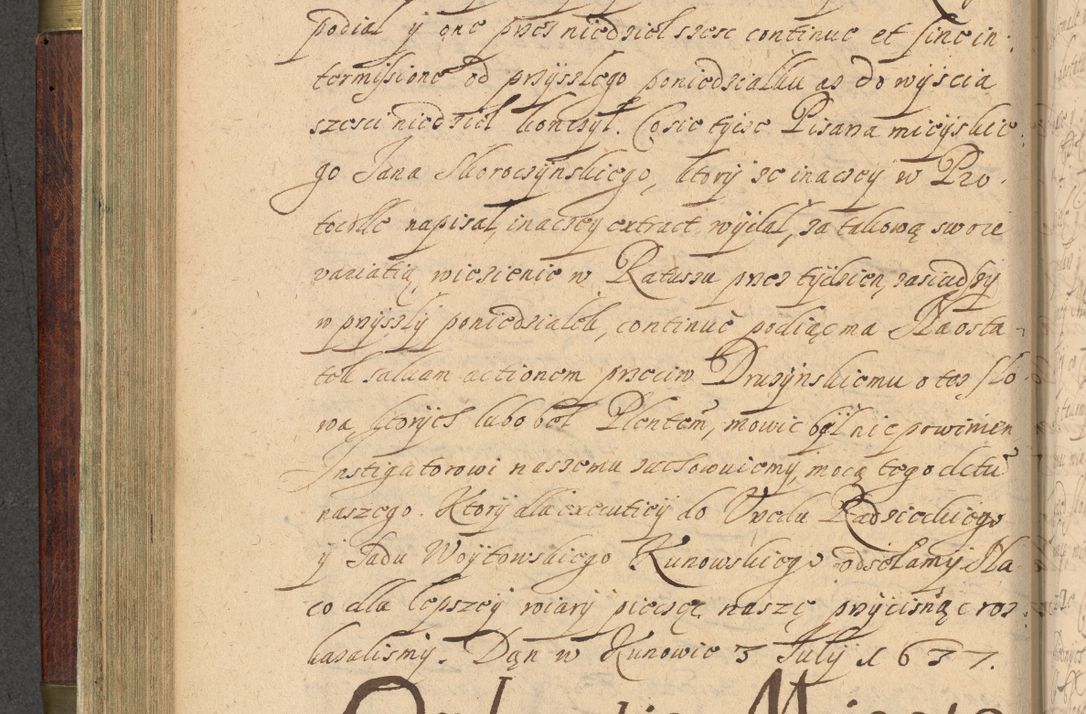 podiął y one przez niedziel szesc continue et sine in:
termisione od przyszłego poniedziałku az do wyscia
szesci niedziel konczył. Co sie tycze Pisarza mieyskie:
go Jana Skoroczynskiego, ktory ze inaczey w Pro:
tocole napisał, inaczey extract wydał, za takową swoie
variatią, wiezienie w Ratuszu przez tydzien, zasiadszy
w przyszły poniedziałek, continue podiąc ma Na osta:
tek saluam actionem przeciw Druzynskiemu o tez sło:
wa ktorych lubo był Plenten, mowic był nie powinien
Instigatorowi naszemu zachowuiemy, mocą tego dctu
naszego. Ktory dla executiey do Urzedu Radzieckiego
y Sadu Woytowskiego Kunowskiego odsełamy. Na
co dla lepszey wiary pieczęc naszę przycisnąc roz:
kazalismy. Dan w Kunowie 3 July 1637.